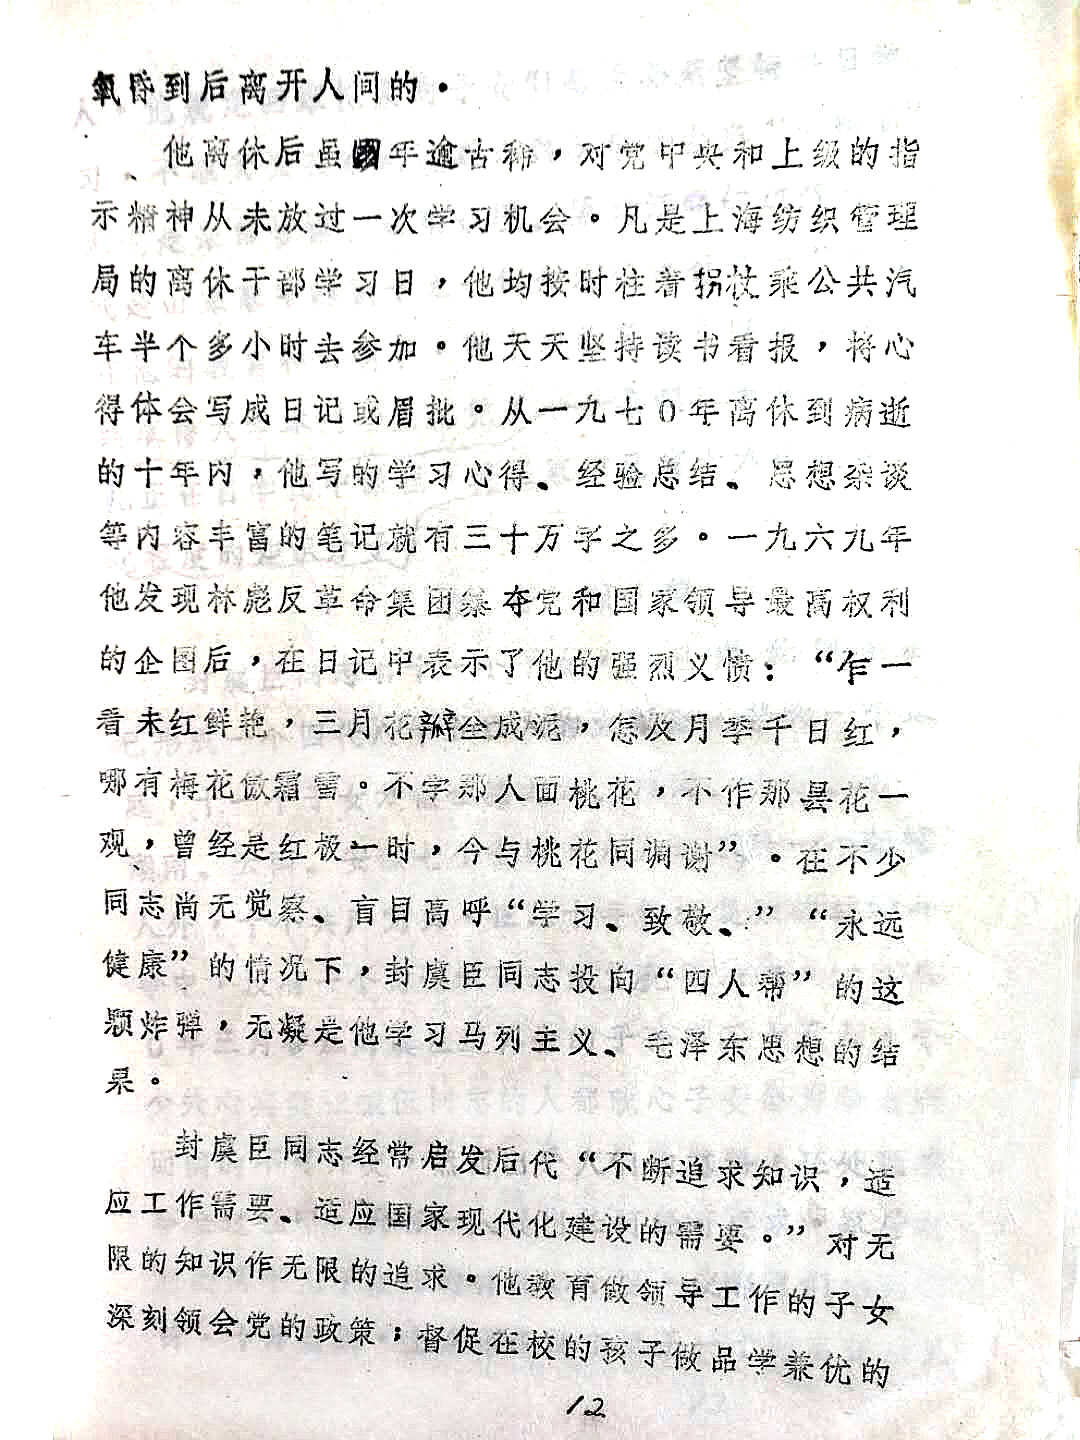 氧昏到后离开人间的。
他离休后虽年逾古稀，对党中央和上级的指
示精神从未放过一次学习机会。凡是上海纺织管理
局的离休干部学习日，他均按时柱着拐杖乘公共汽
车半个多小时去参加。他天天坚持读书看报，将心
得体会写成日记或眉批。从一九七0年离休到病逝
的十年内，他写的学习心得、经验总结、思想杂谈
等内容丰富的笔记就有三十万字之多。一九六九年
他发现林彪反革命集团篡夺党和国家领导最高权利
的企图后，在日记中表示了他的强烈义愤：“乍一
看来红鲜艳，三月花瓣全成泥，怎及月季千日红，
哪有梅花傲霜雪。不学那人面桃花，不作那昙花一
观，曾经是红极一时，今与桃花同调谢”。在不少
同志尚无觉察、盲目高呼“学习、致敬、”“永远
健康”的情况下，封虞臣同志投向“四人帮”的这
颗炸弹，无凝是他学习马列主义、毛泽东思想的结
果。
封虞臣同志经常启发后代“不断追求知识，适
应工作需要、适应国家现代化建设的需要。”对无
限的知识作无限的追求。他教育做领导工作的子女
深刻领会党的政策；督促在校的孩子做品学兼优的
12